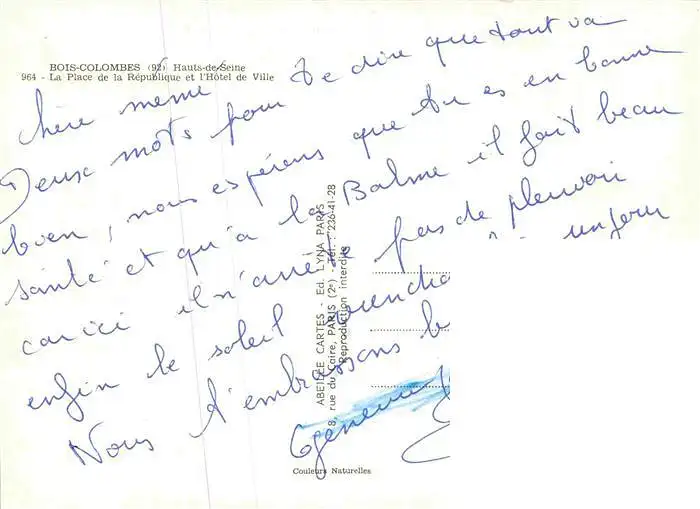 BOIS-COLOMBES (92) Hauts-de-Seine
964 - La Place de la République et l'Hôtel de Ville
chère mémé
Deux mots pour te dire que tout va
bien, nous espérons que tu es en bonne
santé et qu'a la Balme il fait beau
car ici il n'arrête pas de pleuvoir
enfin le soleil un jour
Nous t'embrassons
ABEILLE CARTES - Ed. LYNA PARIS
8, rue du Caire, PARIS (2e) - Tél. : 236-41-28
Reproduction interdite
Couleurs Naturelles